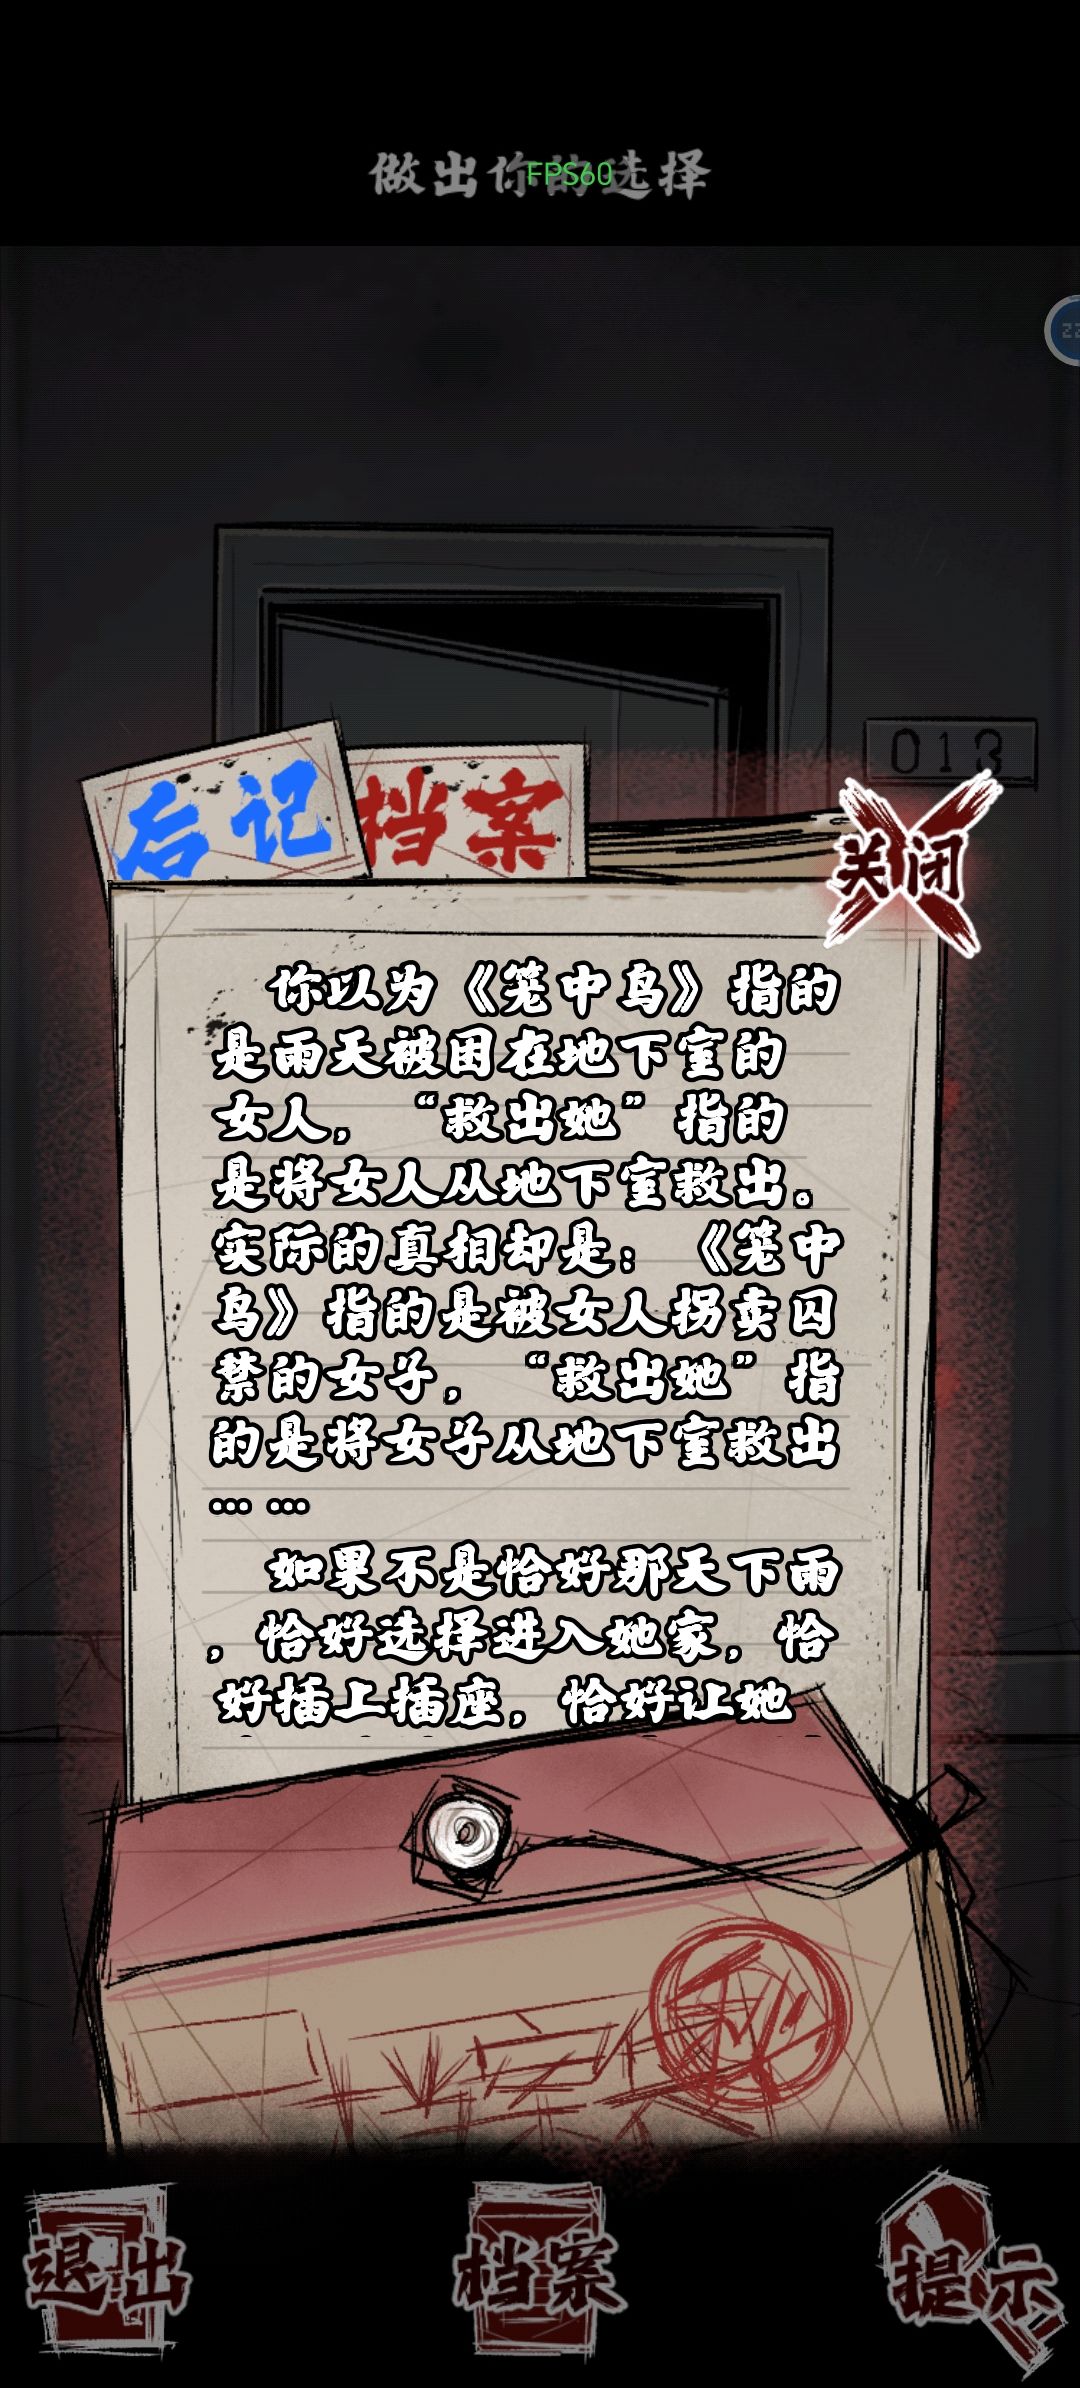 做出你的选择
FPS60
22
013
后记
档案
关闭
你以为《笼中鸟》指的
是雨天被困在地下室的
女人，“救出她”指的
是将女人从地下室救出。
实际的真相却是：《笼中
鸟》指的是被女人拐卖囚
禁的女子，“救出她”指
的是将女子从地下室救出
……
如果不是恰好那天下雨
，恰好选择进入她家，恰
好插上插座，恰好让她
退出
档案
提示